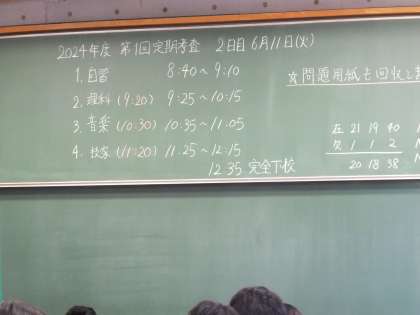 2024年度 第1回定期考査 2日目 6月11日(火)
1.自習 8:40〜9:10
2.理科(9:20) 9:25〜10:15
3.音楽(10:30) 10:35〜11:05
4.技家(11:20) 11:25〜12:15
12:35 完全下校
☆問題用紙も回収し
在 21 19 40
欠 1 1 2
20 18 38